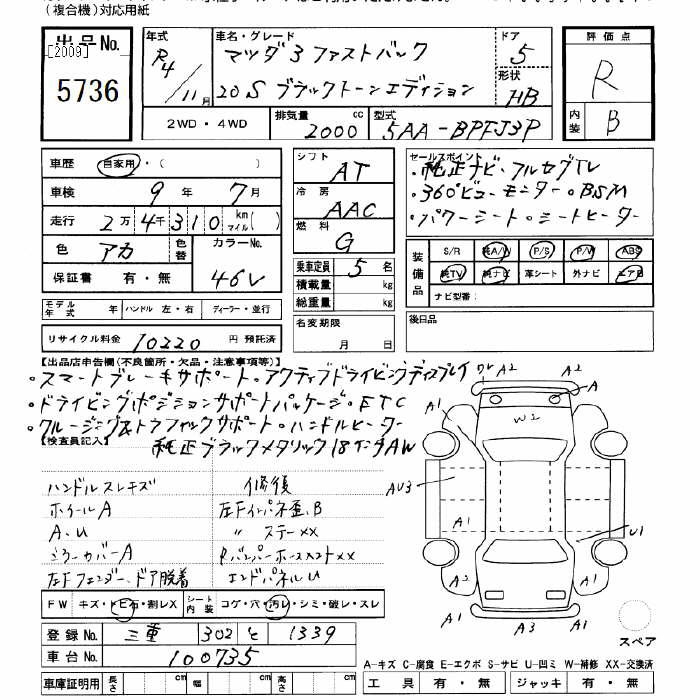 (複合機)対応用紙
出品No. [2009] 5736
年式 R4/11月
車名・グレード マツダ3 ファストバック
20S ブラックトーンエディション
ドア 5
形状 HB
評価点 R
内装 B
2WD・4WD
排気量 2000 cc
型式 5AA-BPFJ3P
車歴 自家用・( )
車検 9年 7月
走行 2万4千310 km マイル( )
色 アカ 色替
カラーNo. 46V
保証書 有・無
モデル年式 年 ハンドル 左・右 ディーラー・並行
リサイクル料金 10220 円 預託済
シフト AT
冷房 AAC
燃料 G
乗車定員 5 名
積載量 kg
総重量 kg
名変期限 月 日
セールスポイント
・純正ナビ・フルセグTV
・360°ビューモニター・BSM
・パワーシート・シートヒーター
装備品 S/R 純A/W P/S P/W ABS
純TV 純ナビ 革シート 外ナビ エアB
ナビ型番:
後日品
【出品店申告欄(不良箇所・欠品・注意事項等)】
・スマートブレーキサポート・アクティブドライビングディスプレイ
・ドライビングポジションサポートパッケージ・ETC
・クルージング&トラフィックサポート・ハンドルヒーター
【検査員記入】 純正ブラックメタリック18インチAW
ハンドルスレキズ 修復
ホイールA 左Fインパネ歪、B
A、U 〃 ステーxx
ミラーカバーA Rバンパーホースメントxx
左Fフェンダー、ドア脱着 エンドパネルU
FW キズ・トビ石・割レX シート内装 コゲ・穴・汚レ・シミ・破レ・スレ
登録No. 三重 302 と 1339
車台No. 100735
車庫証明用 長さ cm 幅 cm 高さ cm
ワレ A2 A2
A1 A A1
W2
AU3
A1 U1
A2 A1
A1 A3 A1
スペア
A-キズ C-腐食 E-エクボ S-サビ U-凹ミ W-補修 XX-交換済
工具 有・無 ジャッキ 有・無